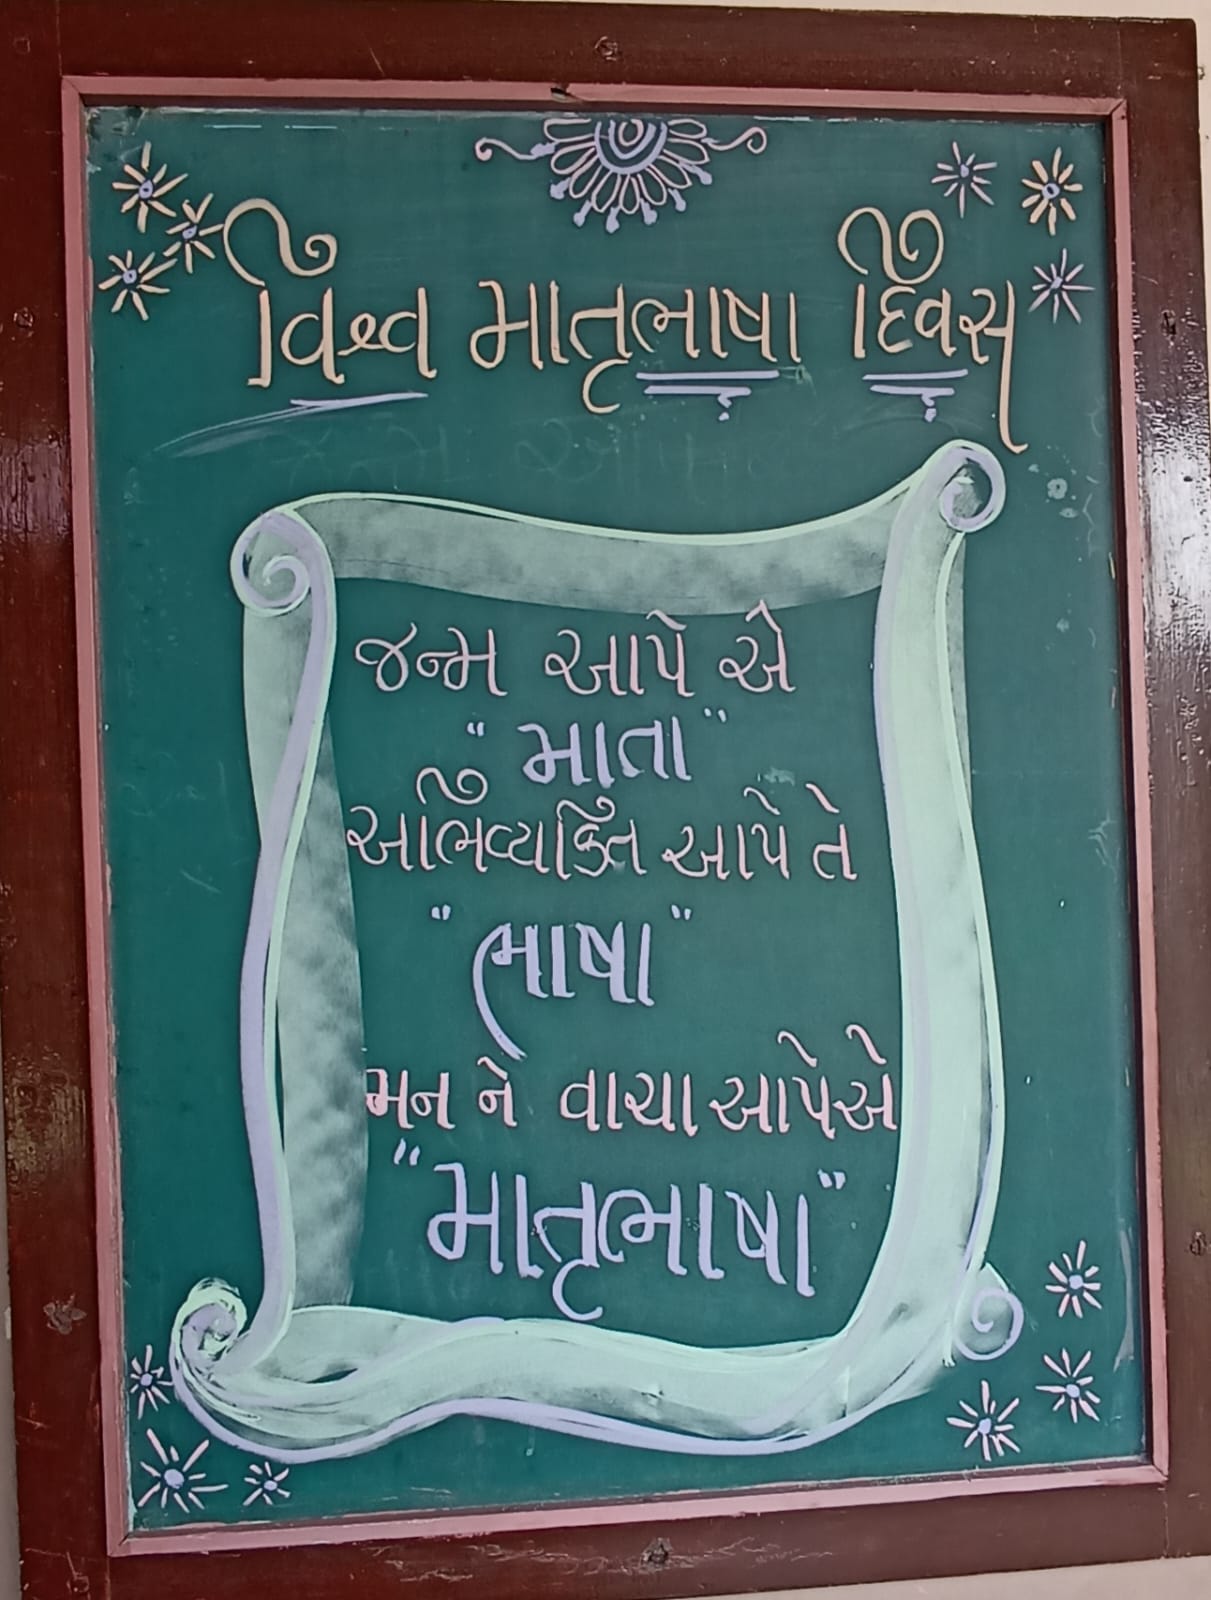 વિશ્વ માતૃભાષા દિવસ
જન્મ આપે એ
"માતા"
અભિવ્યકિત આપે તે
"ભાષા"
મન ને વાચા આપેએ
"માતૃભાષા"